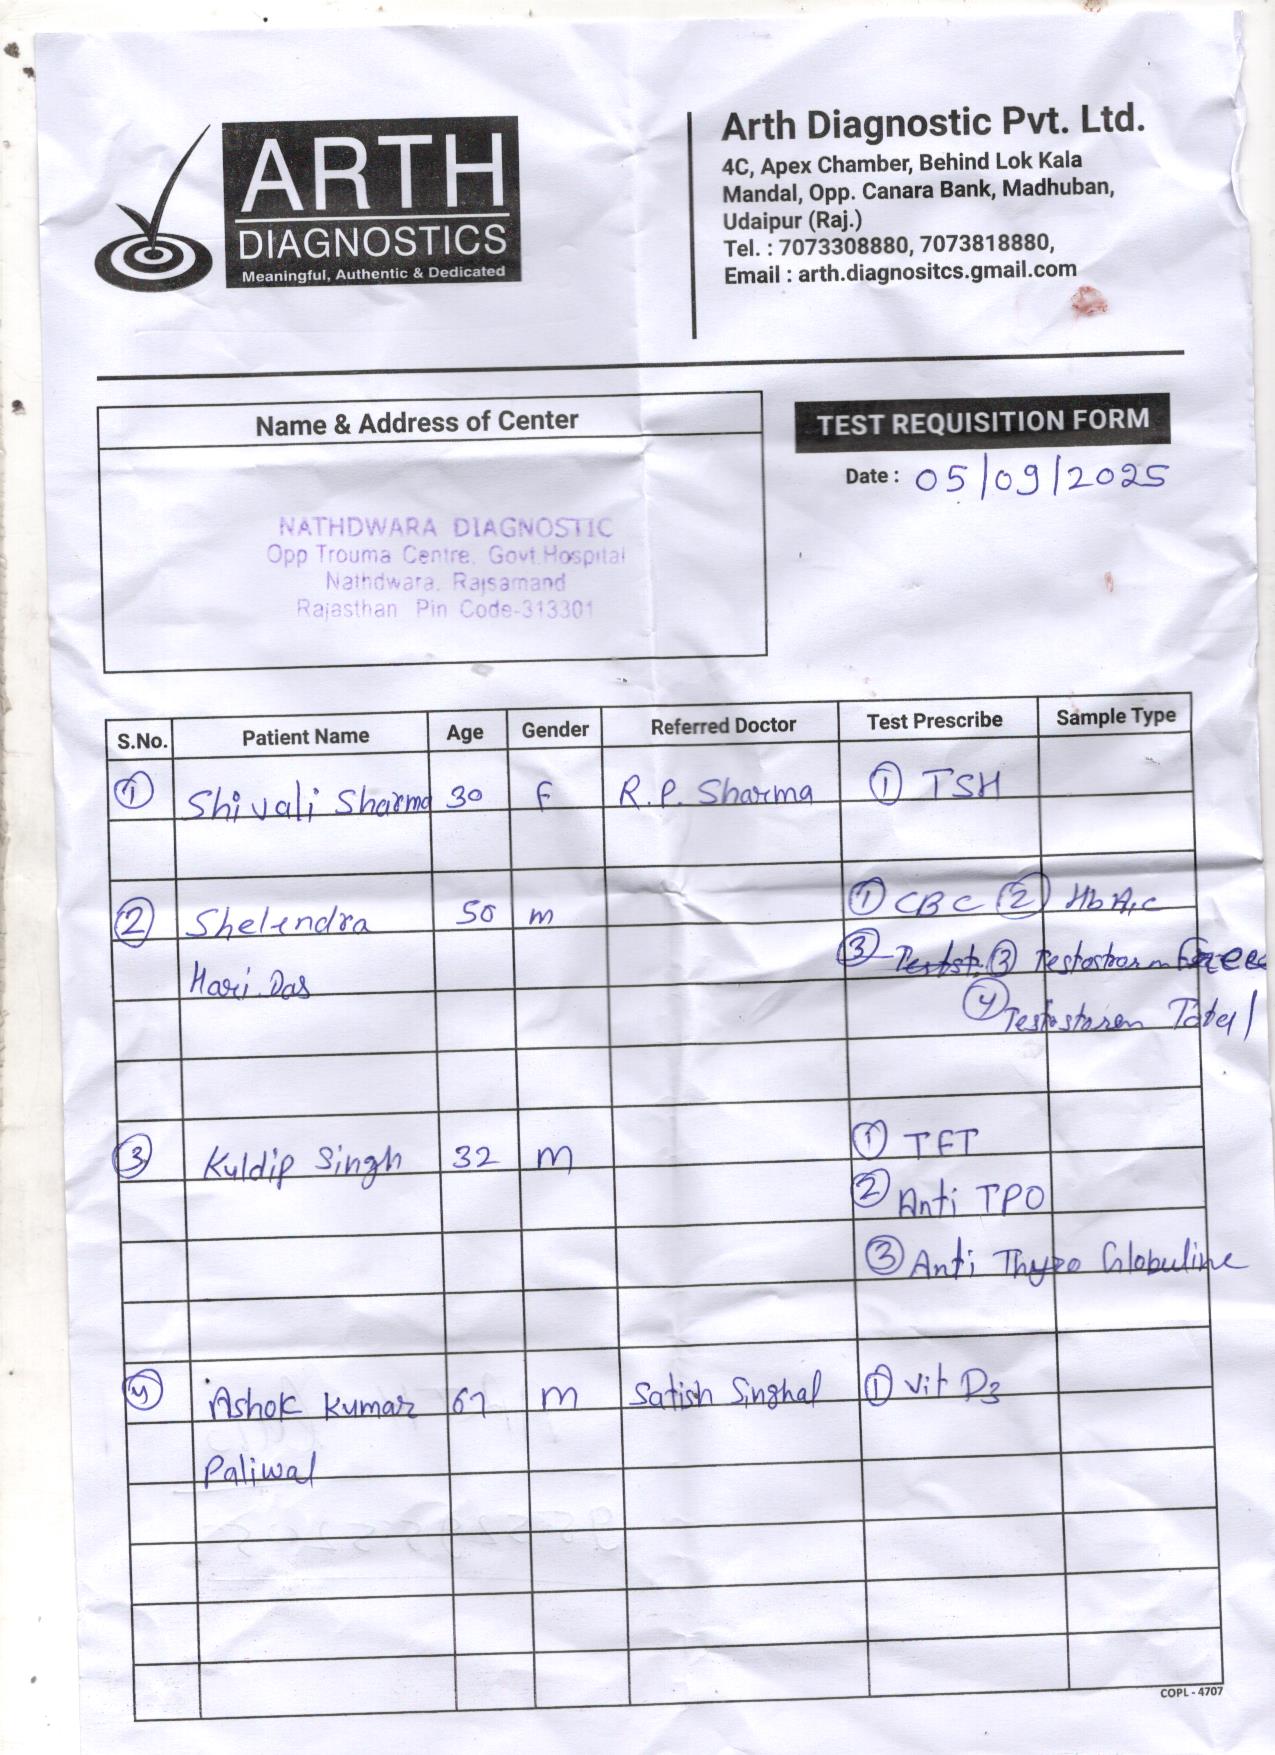 ARTH
DIAGNOSTICS
Meaningful, Authentic & Dedicated
Arth Diagnostic Pvt. Ltd.
4C, Apex Chamber, Behind Lok Kala
Mandal, Opp. Canara Bank, Madhuban,
Udaipur (Raj.)
Tel. : 7073308880, 7073818880,
Email : arth.diagnositcs.gmail.com
Name & Address of Center
NATHDWARA DIAGNOSTIC
Opp Trouma Centre, Govt.Hospital
Nathdwara, Rajsamand
Rajasthan Pin Code-313301
TEST REQUISITION FORM
Date : 05/09/2025
S.No. Patient Name Age Gender Referred Doctor Test Prescribe Sample Type
1 Shivali Sharma 30 F R.P. Sharma 1 TSH
2 Shelendra 50 m 1 CBC 2 HbA1c
Hari Das 3 Testst. 3 Testostorm Free
4 Testostoren Total
3 Kuldip Singh 32 m 1 TFT
2 Anti TPO
3 Anti Thyro Globuline
4 Ashok Kumar 67 m Satish Singhal 1 Vit D3
Paliwal
COPL - 4707